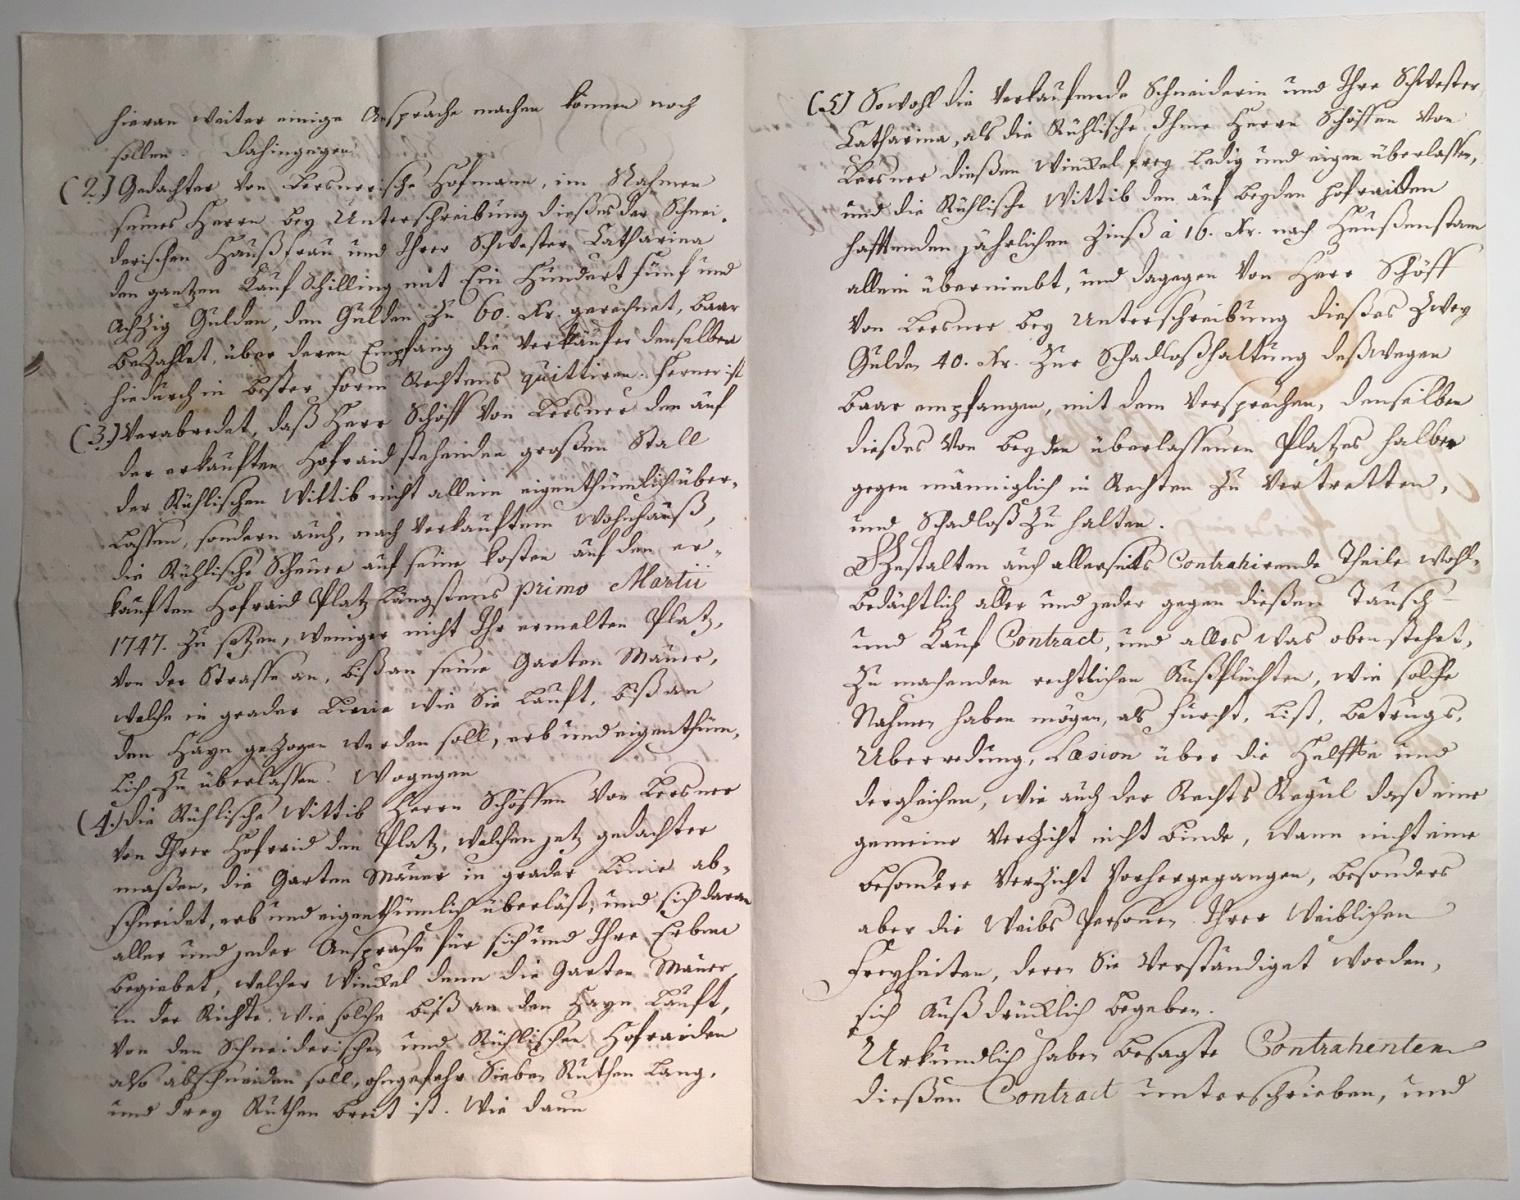 hieran weiter einige Ansprache machen können noch
sollen. Dahingegen
(2.) Gedachter von Lersnerische Hofmann, im Nahmen
seines Herrn bey Unterschreibung dießes der Schnei-
derischen Haußfrau und Ihrer Schwester Catharina
den gantzen Kauf Schilling mit Ein Hundert fünf und
Achzig Gulden, den Gulden zu 60. Kr. gerechnet, baar
bezahlet, über deren Empfang die Verkäufer denselben
hiedurch in bester form Rechtens quittiren. Ferner ist
(3.) Verabredet, daß Herr Schöff von Lersner den auf
der erkauften Hofraid stehenden großen Stall
der Rühlischen Wittib nicht allein eigenthümlich über-
lassen, sondern auch, nach verkauftem Wohnhauß,
die Rühlische Scheuer auf seine Kosten auf den er-
kauften Hofraid Platz längstens primo Martii
1747. zu setzen, weniger nicht Ihr ermelten Platz,
von der Strasse an, biß an seine Garten Mauer,
welche in grader Linie wie Sie lauft, biß an
den Hayn gezogen werden soll, erb und eigenthüm-
lich zu überlassen. Wogegen
(4.) die Rühlische Wittib Herrn Schöffen von Lersner
von Ihrer Hofreid den Platz, welchen jetz gedachter
maßen, die Garten Mauer in grader Linie ab-
schneidet, erb und eigenthümlich überläst, und sich daran
aller und jeder Ansprache für sich und Ihre Erben
begiebet, welcher Winckel dann die Garten Mauer
in der Richte, wie solche biß an den Hayn lauft,
von den Schneiderischen und Rühlischen Hofraiden
also abschneiden soll, ohngefehr Sieben Ruthen lang,
und drey Ruthen breit ist. Wie dann
(5.) Sowohl die Verkaufende Schneiderin und Ihre Schwester
Catharina, als die Rühlische Ihme Herrn Schöffen von
Lersner dießen Winckel frey ledig und eigen überlassen,
und die Rühlische Wittib den auf beyden Hofraiden
hafftenden jährlichen Zinß à 16. Kr. nach Heußenstam
allein übernimbt, und dagegen von Herr Schöff
von Lersner bey Unterschreibung dießes Zwey
Gulden 40. Kr. zur Schadloßhaltung deßwegen
baar empfangen, mit dem Versprechen, denselben
dießes von beyden überlassenen Platzes halber
gegen männiglich in Rechten zu vertretten,
und Schadloß zu halten.
Gestalten auch allerseits Contrahirende Theile wohl-
bedächtlich aller und jeder gegen dießen Tausch-
und Kauf Contract, und alles was oben stehet,
zu machenden rechtlichen Außflüchten, wie solche
Nahmen haben mögen, als Furcht, List, Betrugs,
Uberredung, Læsion über die Helffte und
dergleichen, wie auch der Rechts Regul daß eine
gemeine Verzicht nicht binde, wann nicht eine
besondere Verzicht vorhergegangen, besonders
aber die Weibs Personen Ihrer Weiblichen
Freyheiten, deren Sie verständiget worden,
sich Außdrücklich begeben.
Urkundlich haben besagte Contrahenten
dießen Contract unterschrieben, und